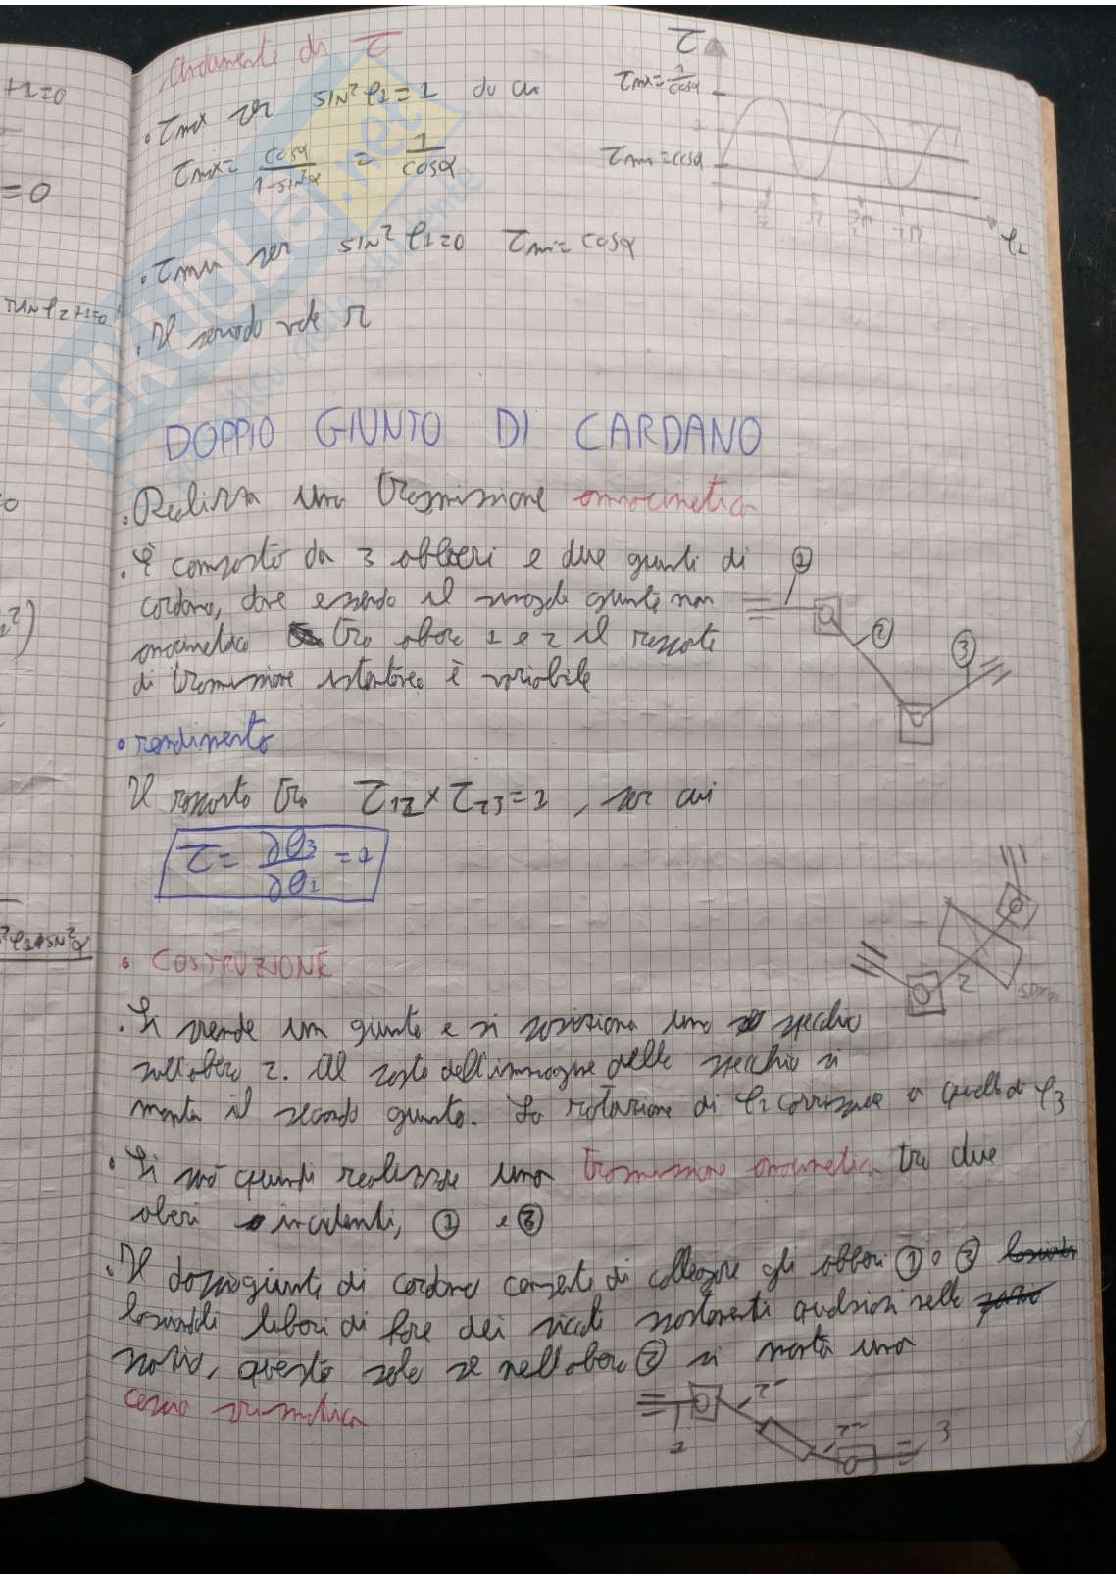 +1=0
=0
TAN φ2+1=0
Andamento di τ
τ
• τmax per sin² φ1 = 1 da cui
τmax = 1/cosα
τmax = cosα/1-sin²α = 1/cosα
τmin = cosα
φ1
• τmin per sin² φ1=0 τmin= cosα
• Il periodo vale π
DOPPIO GIUNTO DI CARDANO
• Realizza una trasmissione omocinetica
• È composto da 3 alberi e due giunti di
1
cardano, dove essendo il singolo giunto non
omocinetico tra albero 1 e 2 il rapporto
2
3
di trasmissione istantaneo è variabile
• rendimento
Il rapporto tra τ12 × τ23 = 1, per cui
τ = ∂θ3/∂θ1 = 1
• COSTRUZIONE
2
• Si prende un giunto e si posiziona uno specchio
sull'albero 2. Al posto dell'immagine dello specchio si
monta il secondo giunto. La rotazione di φ1 corrisponde a quella di φ3
• Si può quindi realizzare una trasmissione omocinetica tra due
alberi incidenti, 1 e 3
• Il doppio giunto di cardano consente di collegare gli alberi 1 e 3
lasciandoli liberi di fare dei piccoli spostamenti qualsiasi nello
spazio, questo solo se nell'albero 2 si monta una
coppia prismatica
2'
2''
1
3